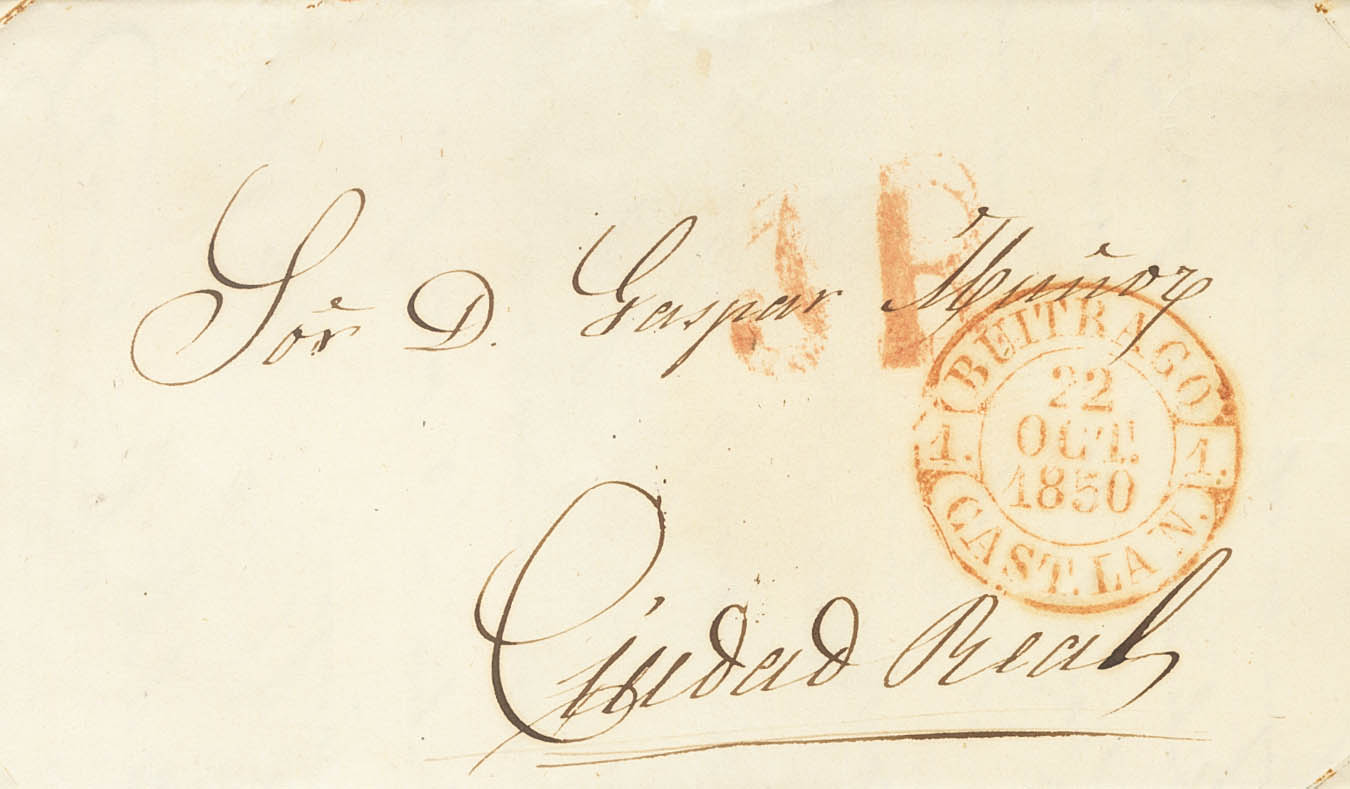 Sor̃ D. Gaspar Muñoz
Ciudad Real
BUITRAGO
1. 22 1.
OCT.
1850
CAST. LA N.